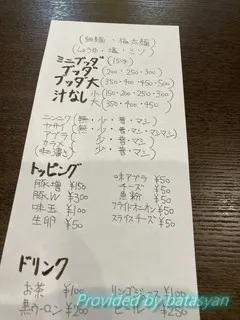 (細麺・極太麺)
(しょうゆ・塩・ミソ)
ミニブッダ (150g)
ブッダ (200・250・300)
ブッダ大 (350・400・450・500)
汁なし 小 (150・200・250・300)
大 (350・400・450)
ニンニク (無・少・普・マシ)
ヤサイ (無・少・普・マシ・マシマシ)
アブラ (少・普・マシ)
カラメ
味の濃さ (少・普・マシ)
トッピング
豚増 ¥150
豚W ¥300
味玉 ¥100
生卵 ¥50
味アブラ ¥50
チーズ ¥50
魚粉 ¥50
フライドオニオン ¥50
スライスチーズ ¥50
ドリンク
お茶 ¥100
黒ウーロン ¥200
リンゴジュース ¥100
ビール ¥250
Provided by batasyan